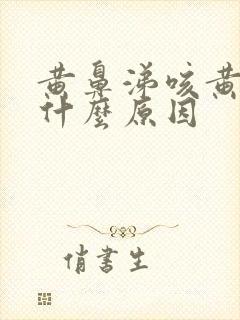 黄鼻涕咳黄
什麼原因
俏書生